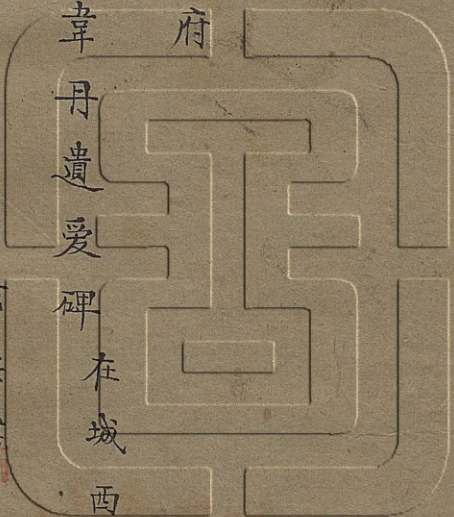 府
韋丹遺爱碑
在城西